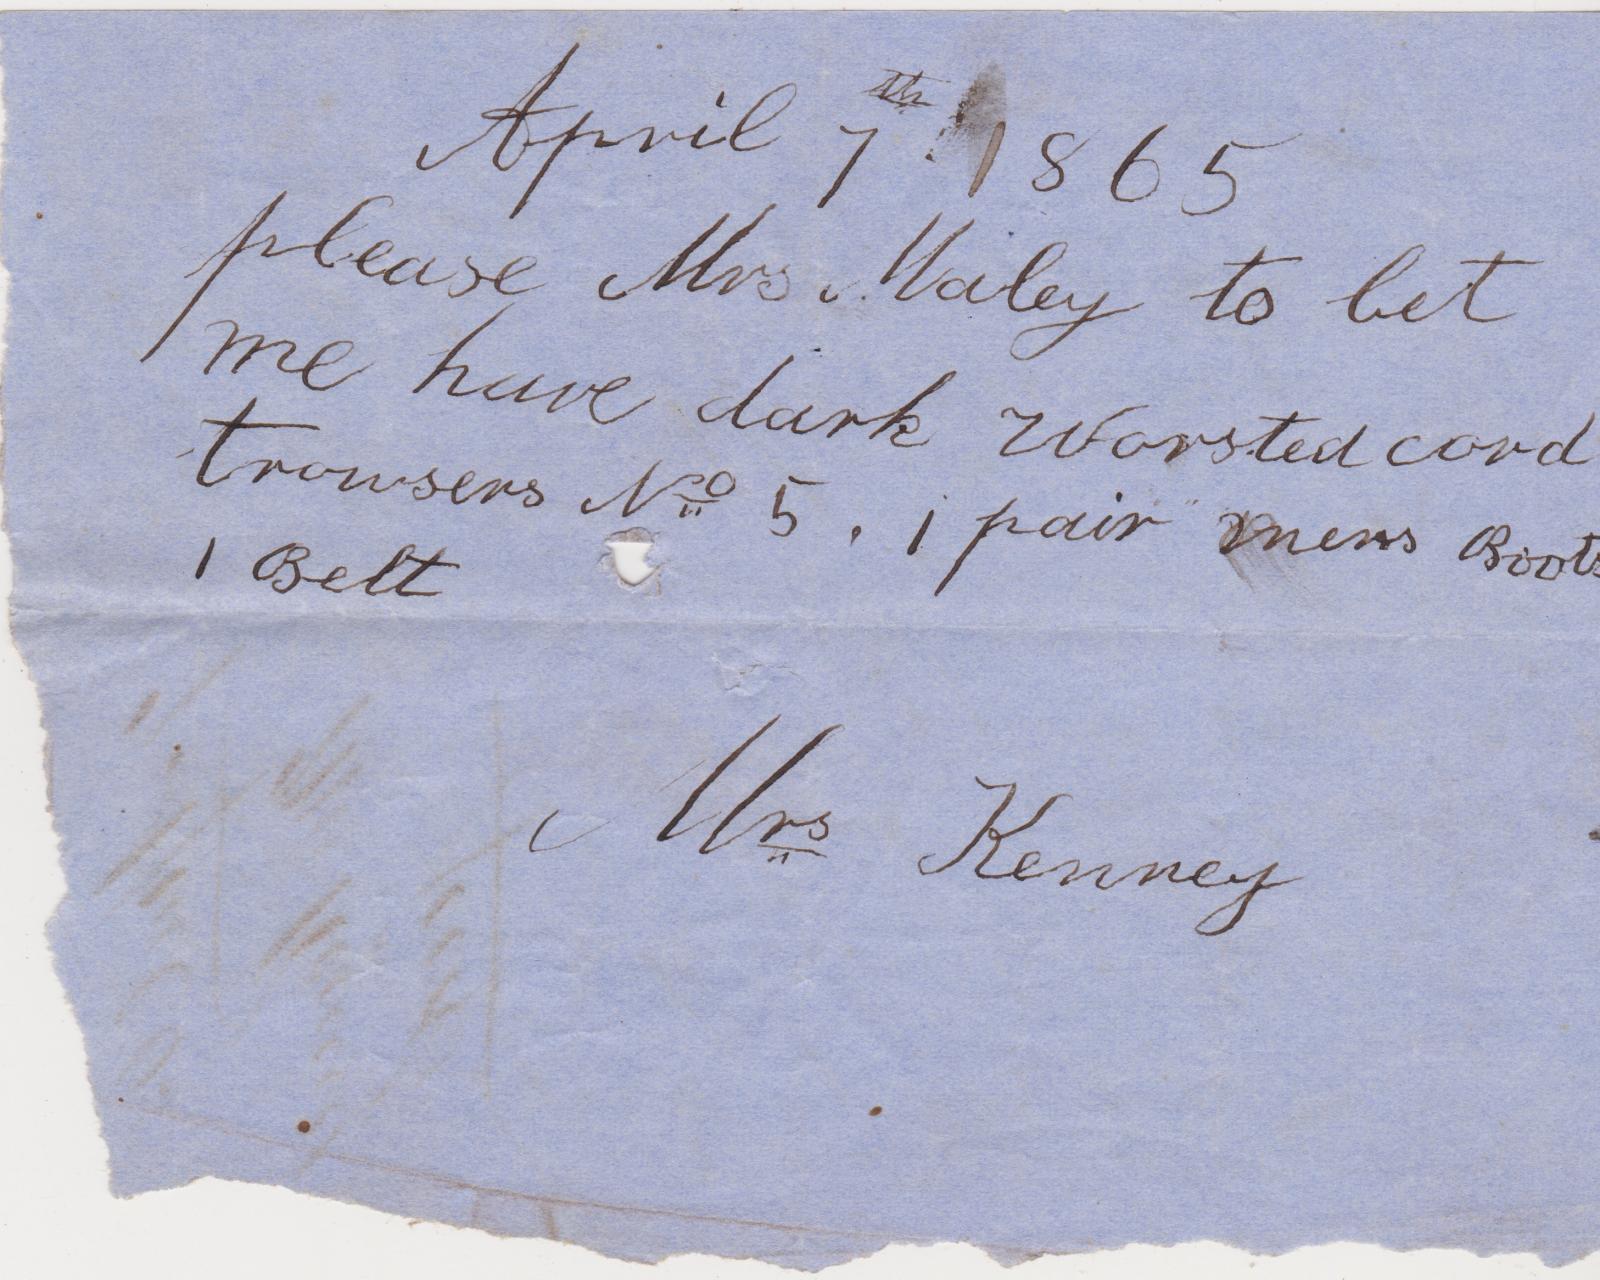 April 7th. 1865
please Mrs. Maley to let
me have dark Worsted cord
trowsers No 5. 1 pair mens Boots
1 Belt
Mrs Kenney